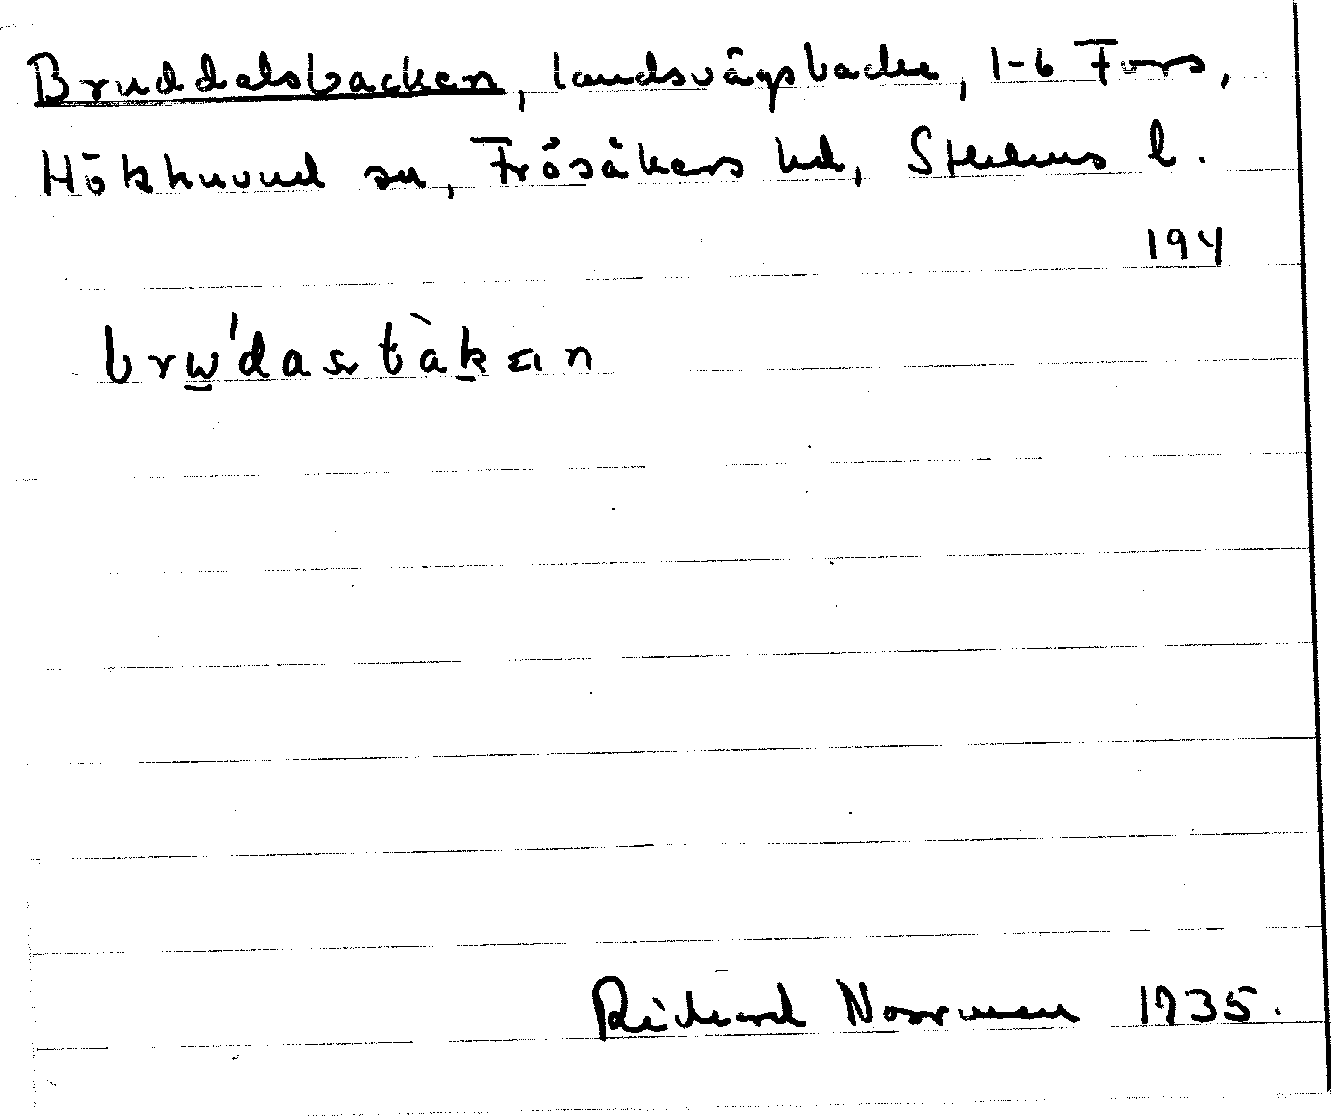 Bruddalsbacken, landsvägsbacke, 1-6 Fors,
Hökhuvud sn, Frösåkers hd, Sthlms l.
194
brw'dasbàkan
Richard Norrman 1935.